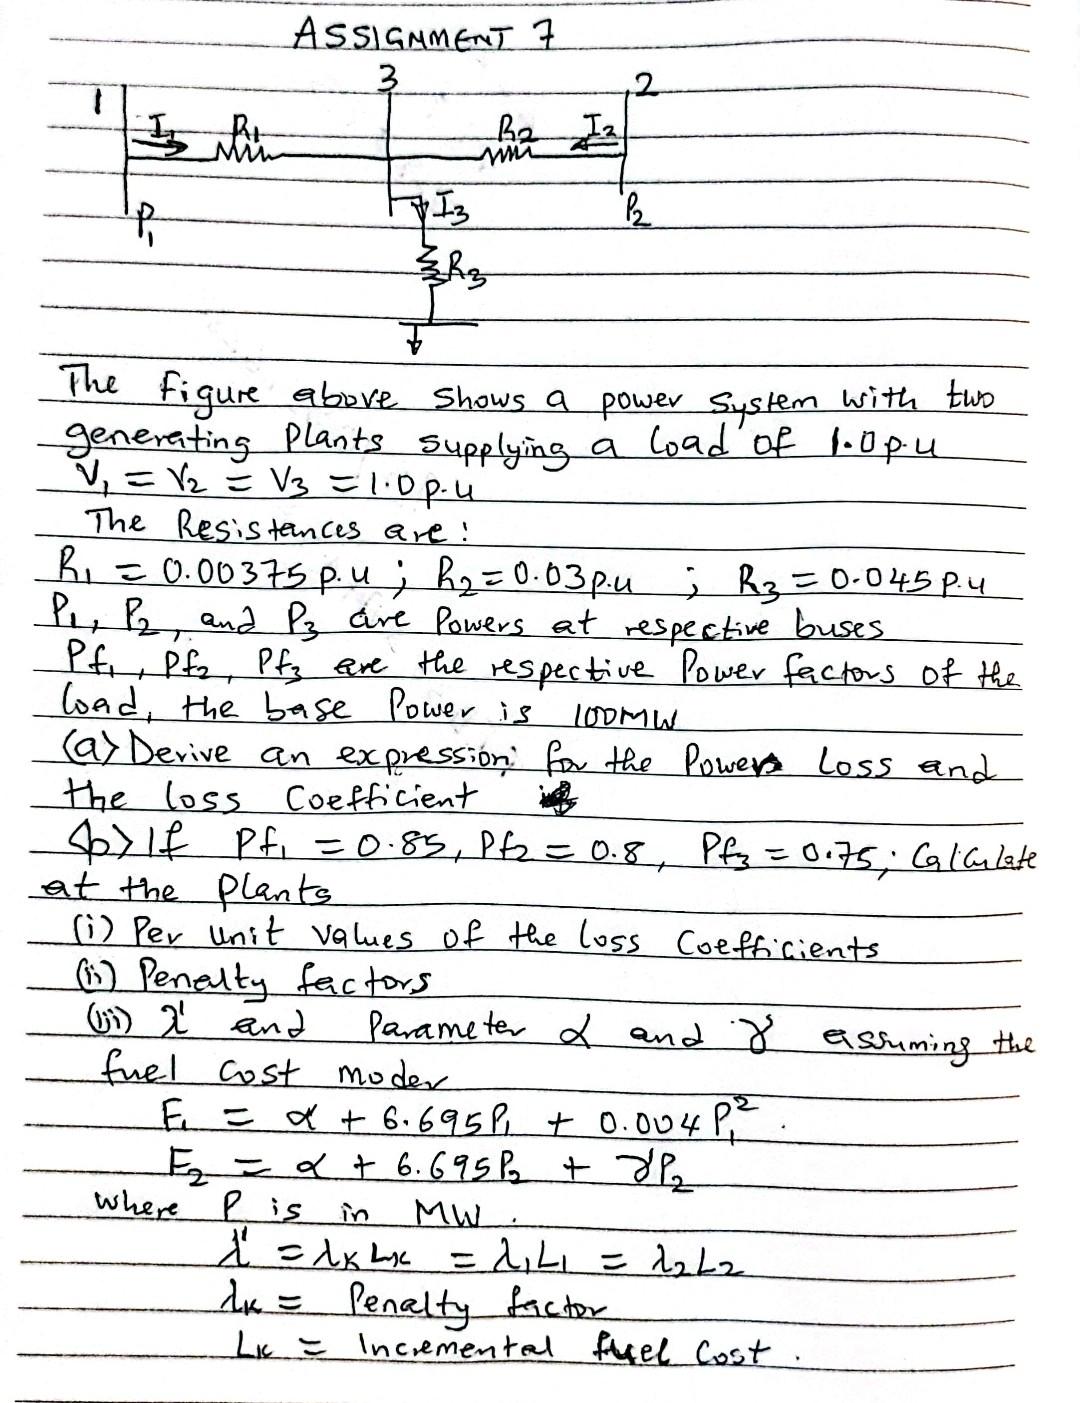 ASSIGNMENT 7
1 3 2
I₁ R₁ R₂ I₂
P₁ I₃ P₂
R₃
The figure above shows a power system with two
generating plants supplying a load of 1.0 p.u
V₁ = V₂ = V₃ = 1.0 p.u
The Resistances are:
R₁ = 0.00375 p.u ; R₂ = 0.03 p.u ; R₃ = 0.045 p.u
P₁, P₂, and P₃ are Powers at respective buses
Pf₁, Pf₂, Pf₃ are the respective Power factors of the
load, the base Power is 100MW
(a) Derive an expression for the Power Loss and
the loss Coefficient
(b) If Pf₁ = 0.85, Pf₂ = 0.8, Pf₃ = 0.75; Calculate
at the plants
(i) Per Unit values of the loss Coefficients
(ii) Penalty factors
(iii) λ' and Parameter α and γ assuming the
fuel cost moder
F₁ = α + 6.695P₁ + 0.004 P₁².
F₂ = α + 6.695P₂ + γP₂
where P is in MW.
λ' = λK LK = λ₁L₁ = λ₂L₂
λK = Penalty factor
LK = Incremental fuel Cost.